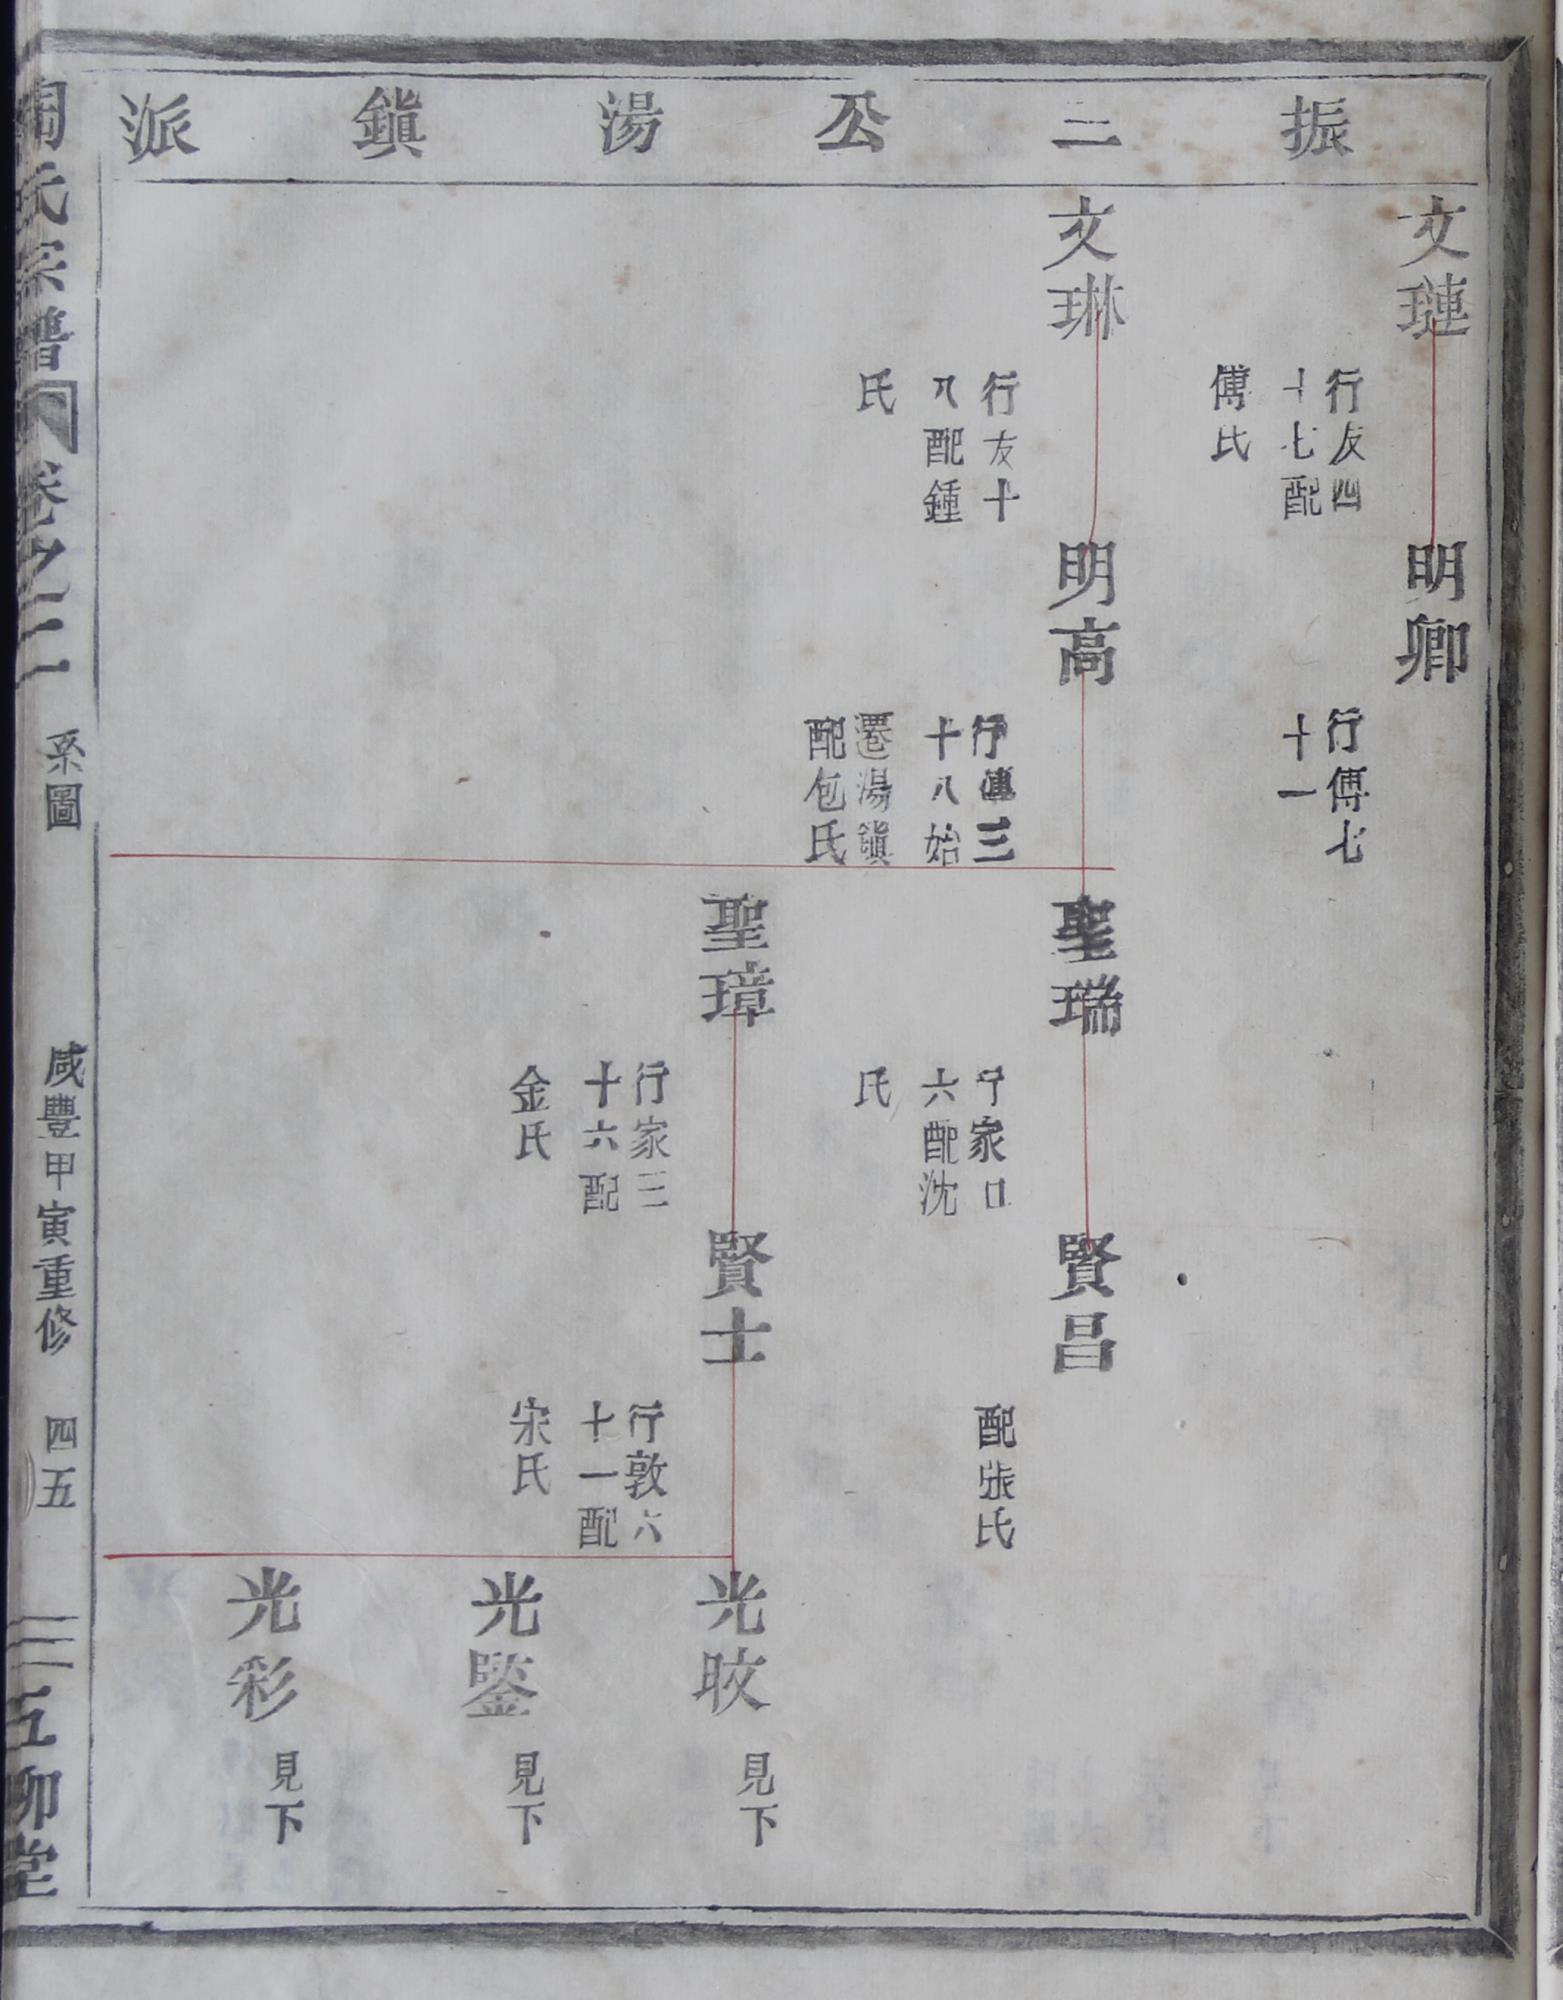 振二公湯鎭派
文璉
行友四
十七配
傅氏
明卿
行傅七
十一
文琳
行友十
八配鍾
氏
明高
行傳三
十八始
遷湯鎭
配包氏
聖瑞
行家口
六配沈
氏
賢昌
配張氏
聖璋
行家三
十六配
金氏
賢士
行敦六
十一配
宋氏
光旼
見下
光鑒
見下
光彩
見下
陶氏宗譜
卷之二
系圖
咸豐甲寅重修
四五
五柳堂